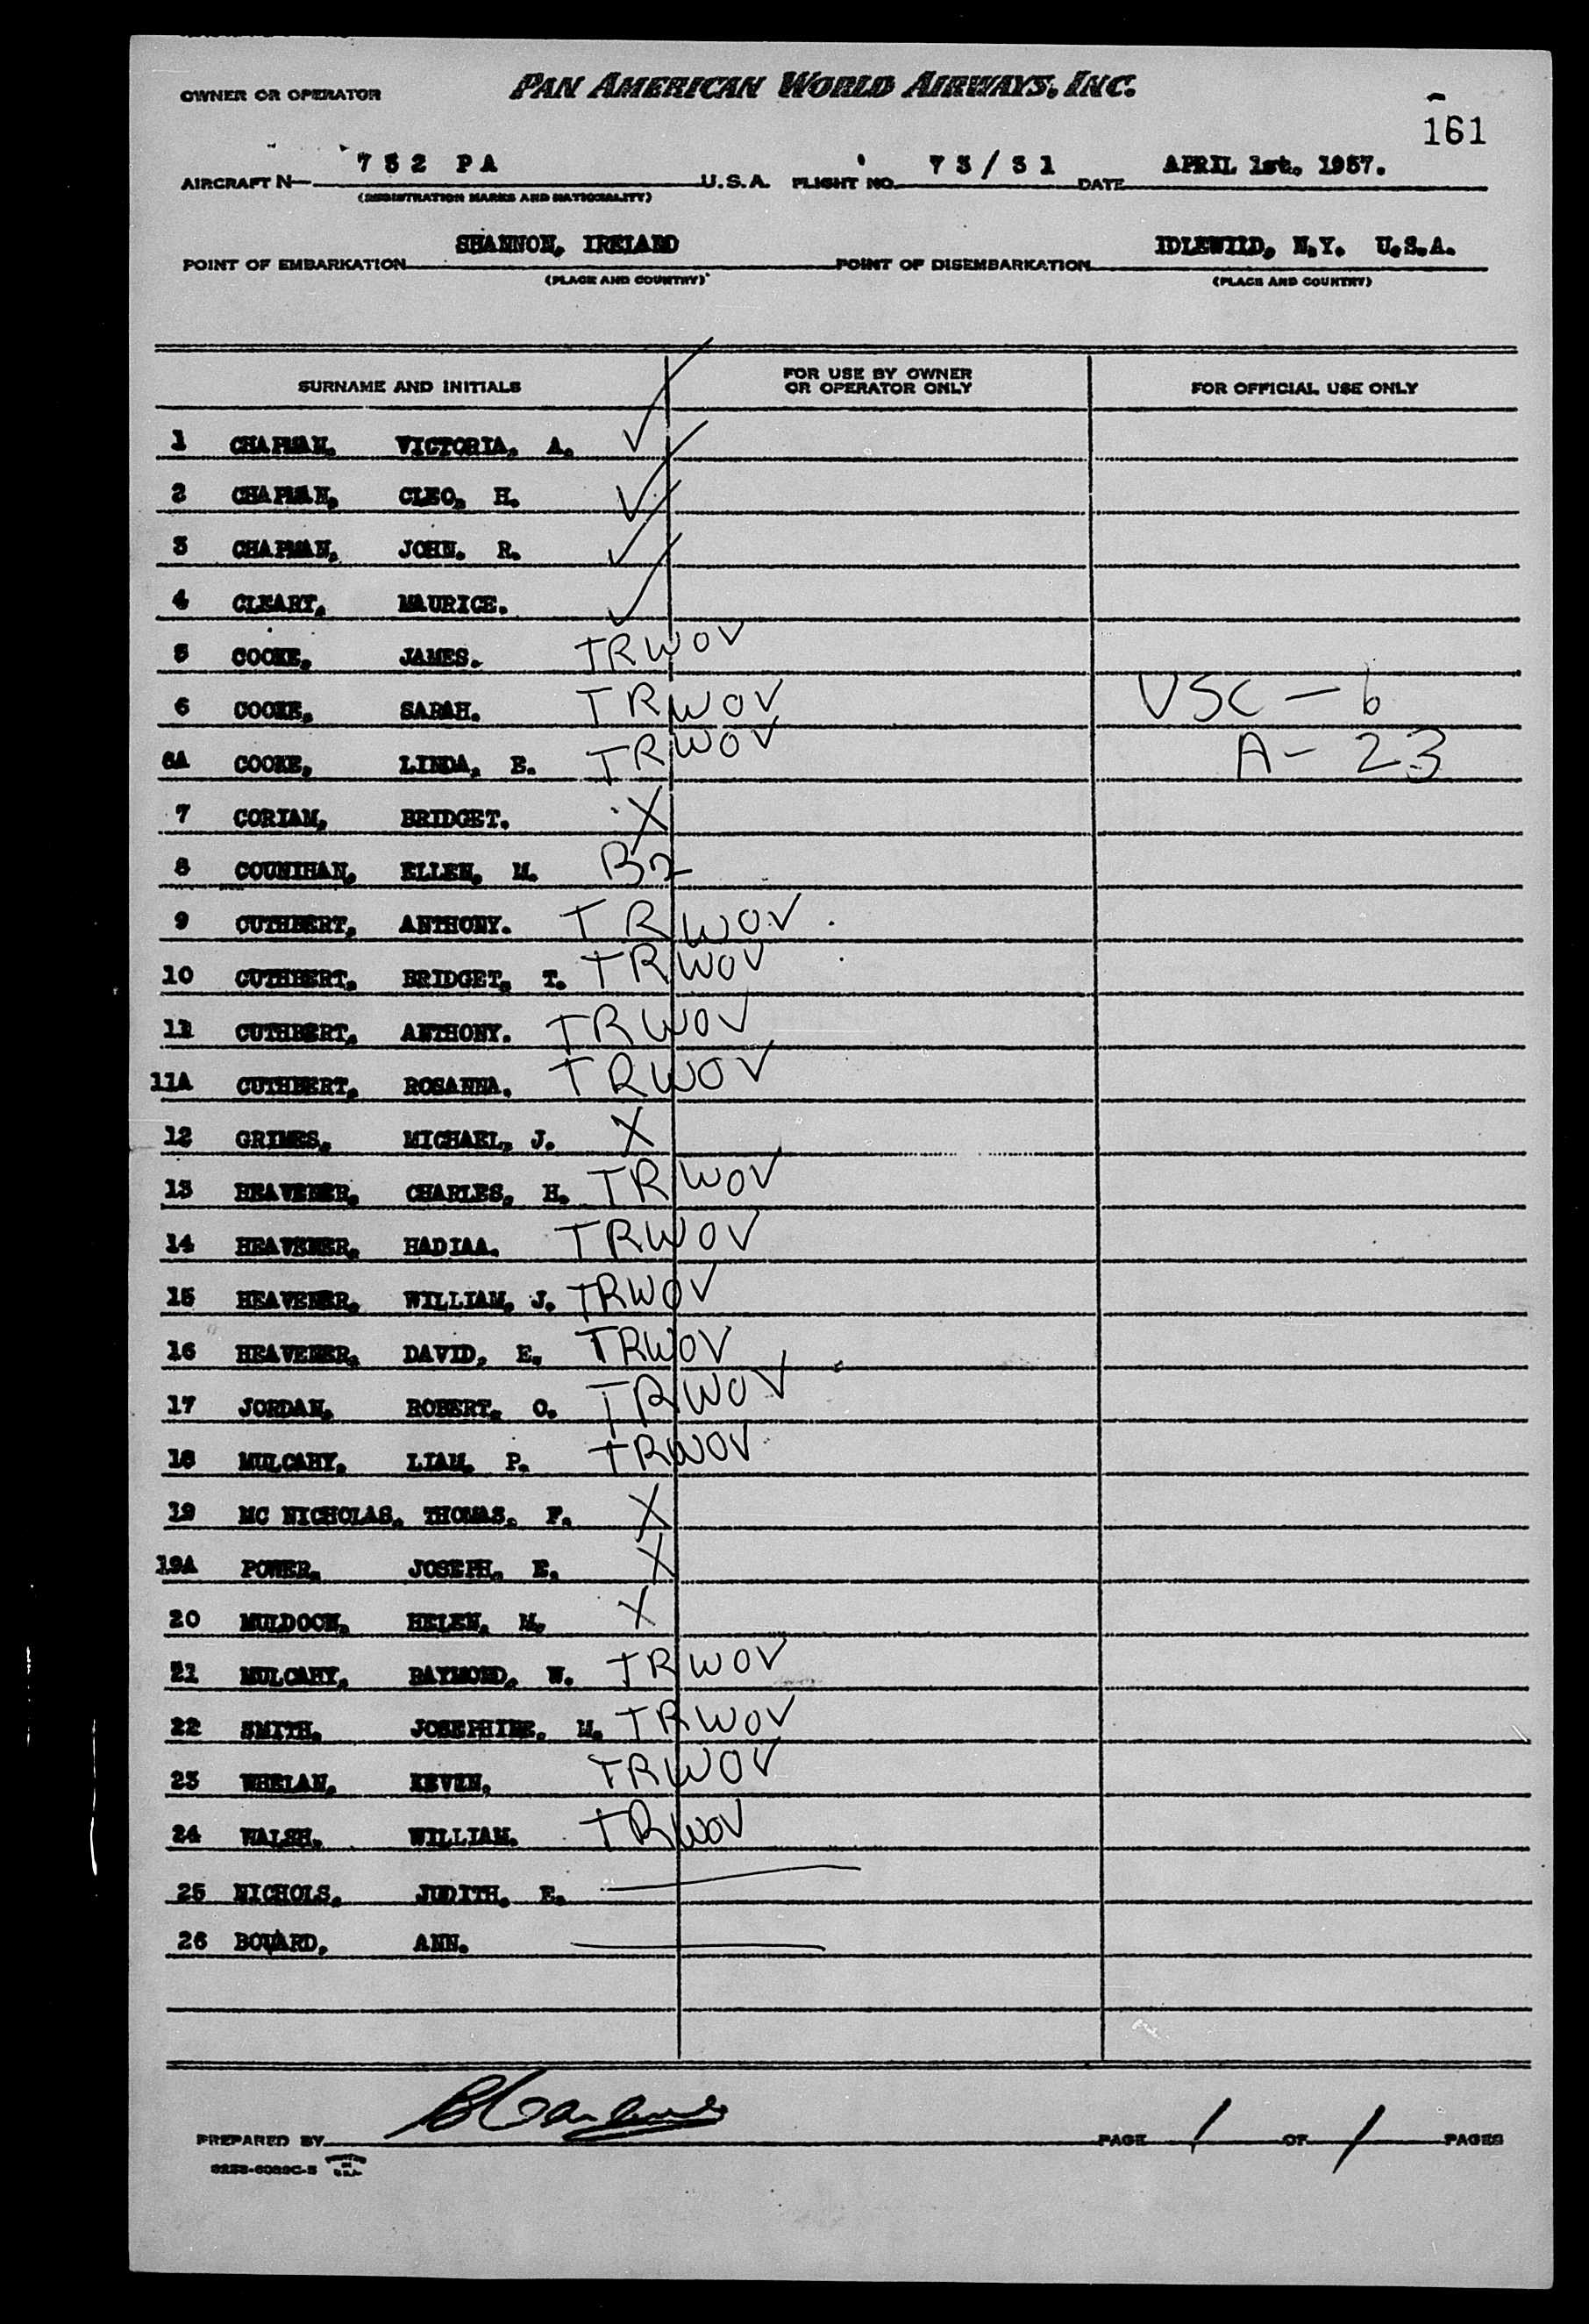 OWNER OR OPERATOR PAN AMERICAN WORLD AIRWAYS, INC.
161
AIRCRAFT N 732 PA U.S.A. FLIGHT NO. 73/31 DATE APRIL 1st. 1957.
(REGISTRATION MARKS AND NATIONALITY)
POINT OF EMBARKATION SHANNON, IRELAND POINT OF DISEMBARKATION IDLEWILD, N.Y. U.S.A.
(PLACE AND COUNTRY) (PLACE AND COUNTRY)
SURNAME AND INITIALS FOR USE BY OWNER OR OPERATOR ONLY FOR OFFICIAL USE ONLY
1 CHAPMAN, VICTORIA, A. ✓
2 CHAPMAN, CLEO, H. ✓
3 CHAPMAN, JOHN. R. ✓
4 CLEARY, MAURICE. ✓
5 COOKE, JAMES. TRWOV
6 COOKE, SARAH. TRWOV USC - 6
6A COOKE, LINDA, E. TRWOV A - 23
7 CORIAM, BRIDGET. X
8 COUNIHAN, ELLEN, M. B2
9 CUTHBERT, ANTHONY. TRWOV
10 CUTHBERT, BRIDGET, T. TRWOV
11 CUTHBERT, ANTHONY. TRWOV
11A CUTHBERT, ROSANNA. TRWOV
12 GRIMES, MICHAEL, J. X
13 HEAVENER, CHARLES, H. TRWOV
14 HEAVENER, HADIAA. TRWOV
15 HEAVENER, WILLIAM, J. TRWOV
16 HEAVENER, DAVID, E. TRWOV
17 JORDAN, ROBERT, O. TRWOV
18 MULCAHY, LIAM, P. TRWOV
19 MC NICHOLAS, THOMAS, F. X
19A POWER, JOSEPH, E. X
20 MULDOON, HELEN, M. X
21 MULCAHY, RAYMOND, W. TRWOV
22 SMITH, JOSEPHINE, M. TRWOV
23 WHELAN, KEVIN. TRWOV
24 WALSH, WILLIAM. TRWOV
25 NICHOLS, JUDITH, E.
26 BOVARD, ANN.
PREPARED BY PAGE 1 OF 1 PAGES
PRINTED IN U.S.A.